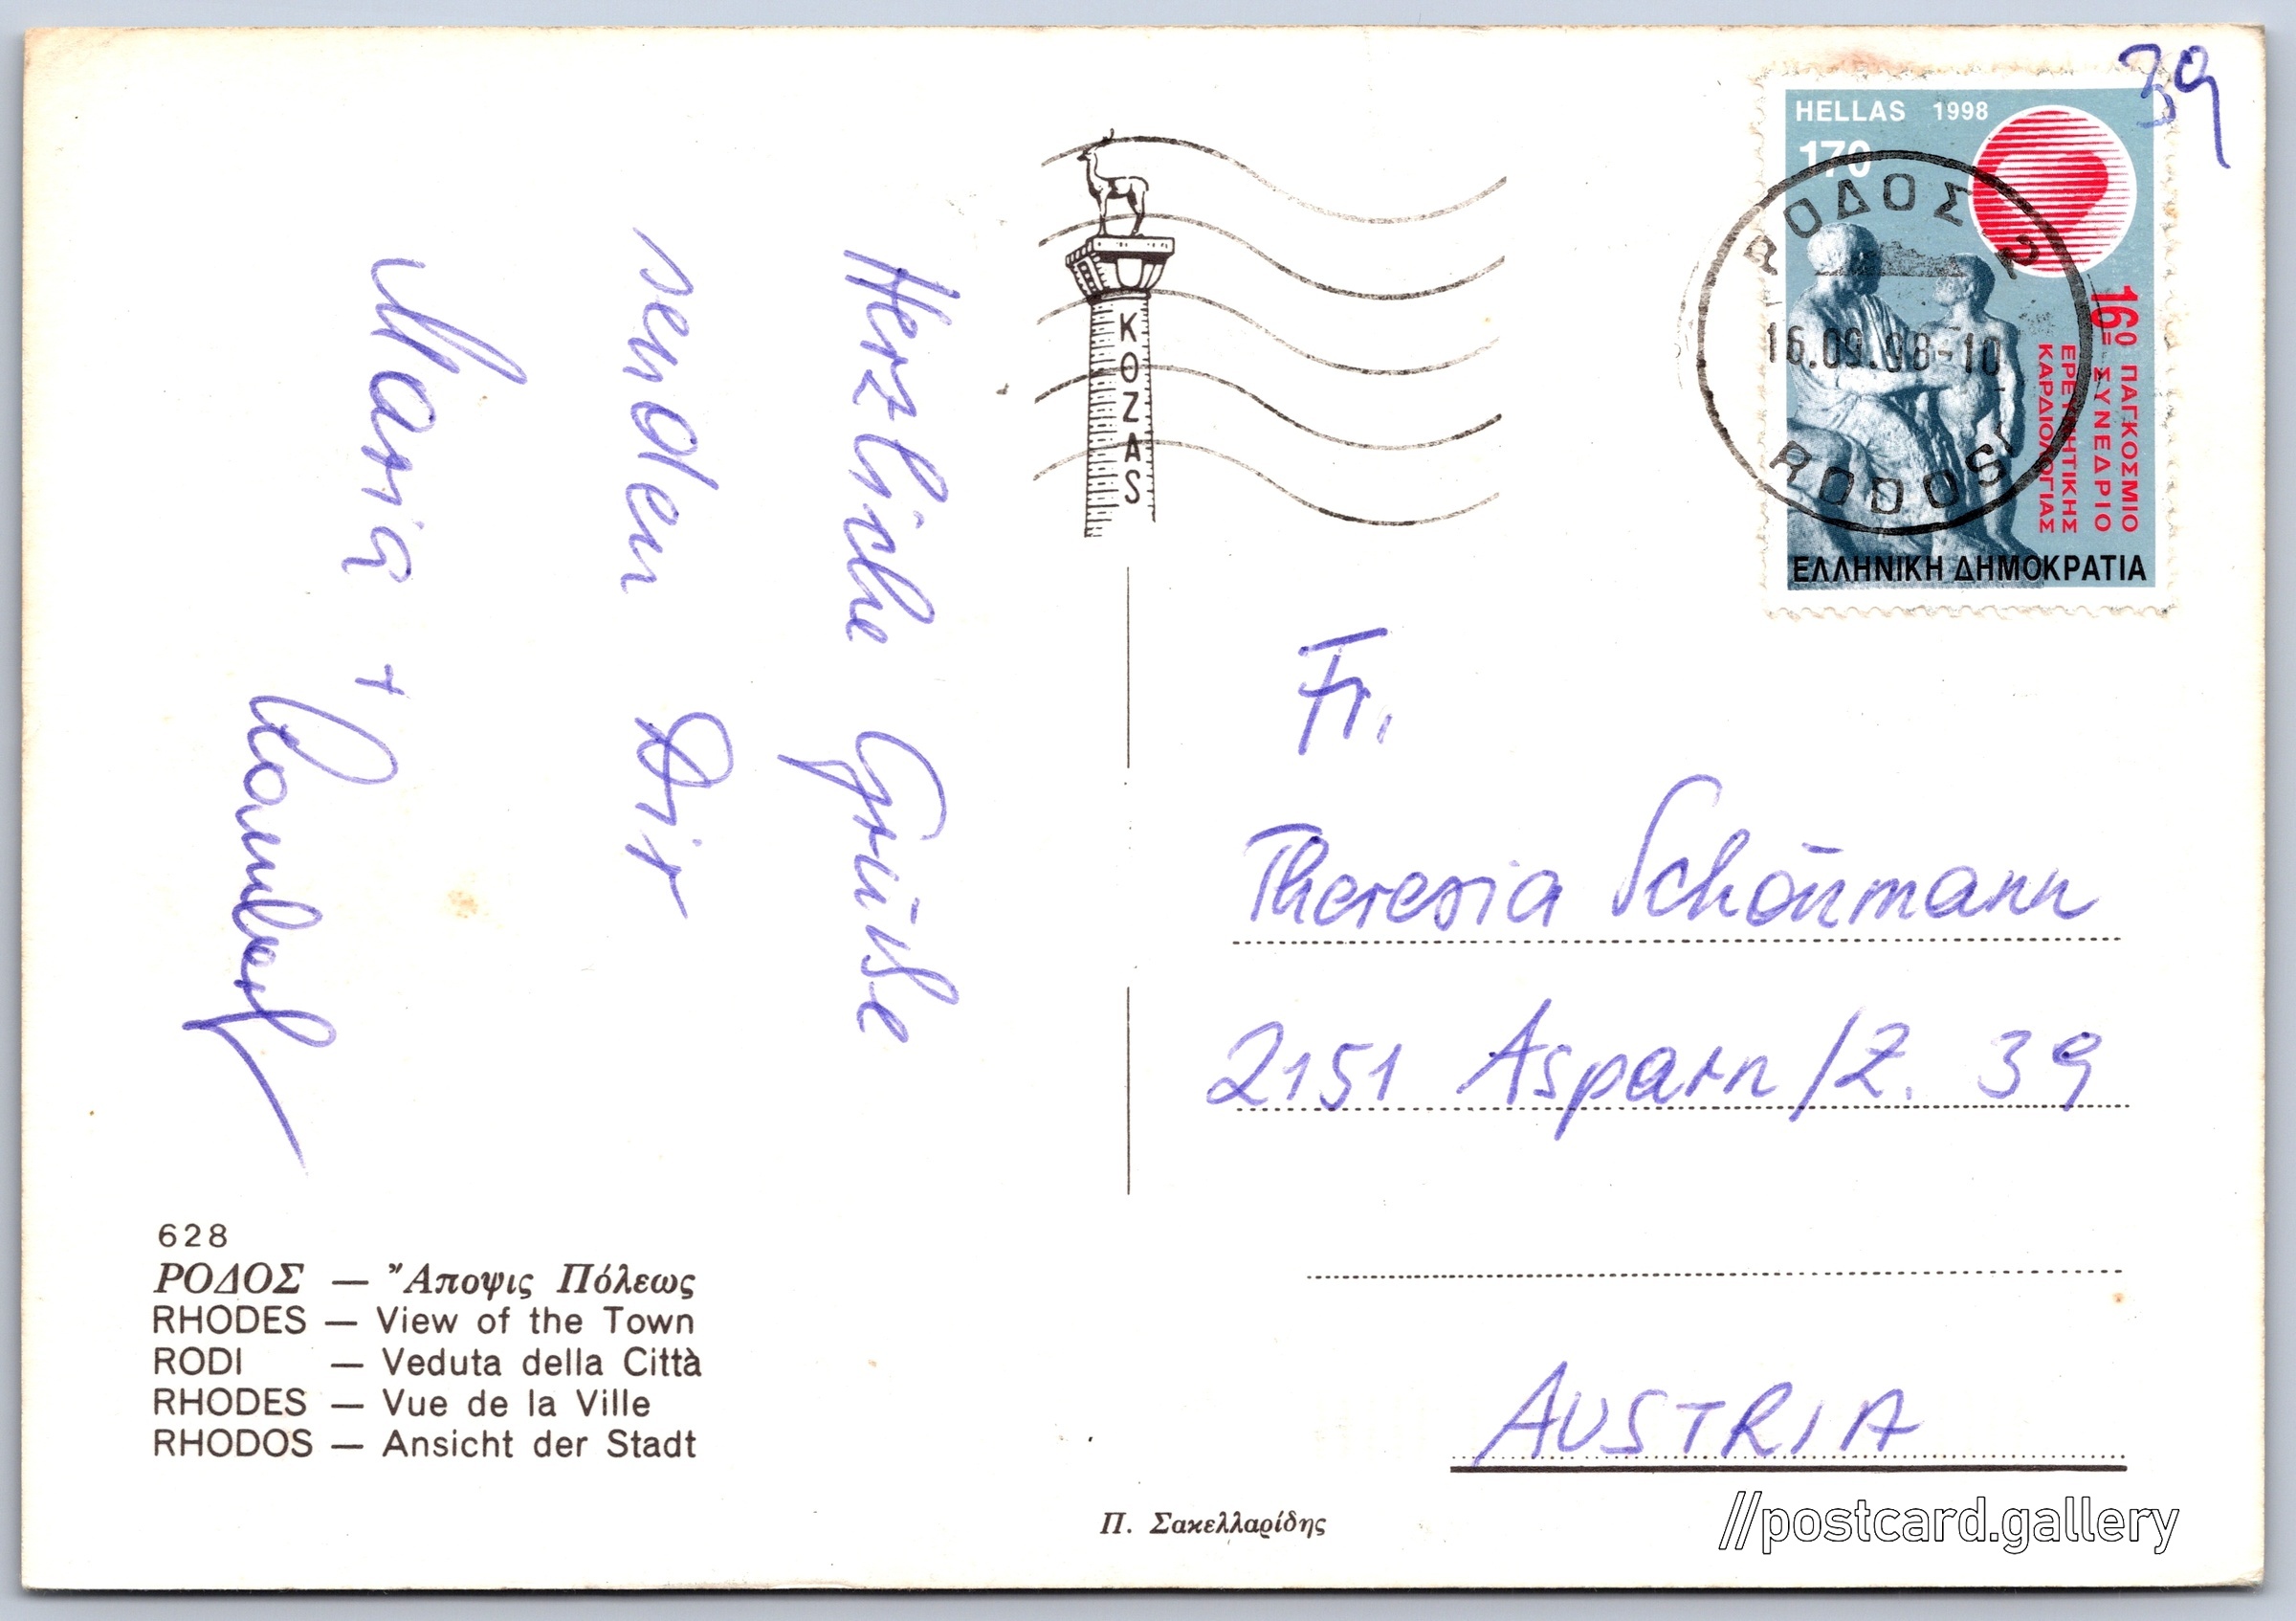 Herzliche Grüße
senden Dir
Maria +
39
HELLAS 1998
170
16ο ΠΑΓΚΟΣΜΙΟ
ΣΥΝΕΔΡΙΟ
ΕΡΕΥΝΗΤΙΚΗΣ
ΚΑΡΔΙΟΛΟΓΙΑΣ
ΕΛΛΗΝΙΚΗ ΔΗΜΟΚΡΑΤΙΑ
ΡΟΔΟΣ 2
16.09.98-10
RODOS
KOZAS
Fr.
Theresia Schönmann
2151 Asparn/Z. 39
AUSTRIA
628
ΡΟΔΟΣ — Ἄποψις Πόλεως
RHODES — View of the Town
RODI — Veduta della Città
RHODES — Vue de la Ville
RHODOS — Ansicht der Stadt
Π. Σακελλαρίδης
//postcard.gallery